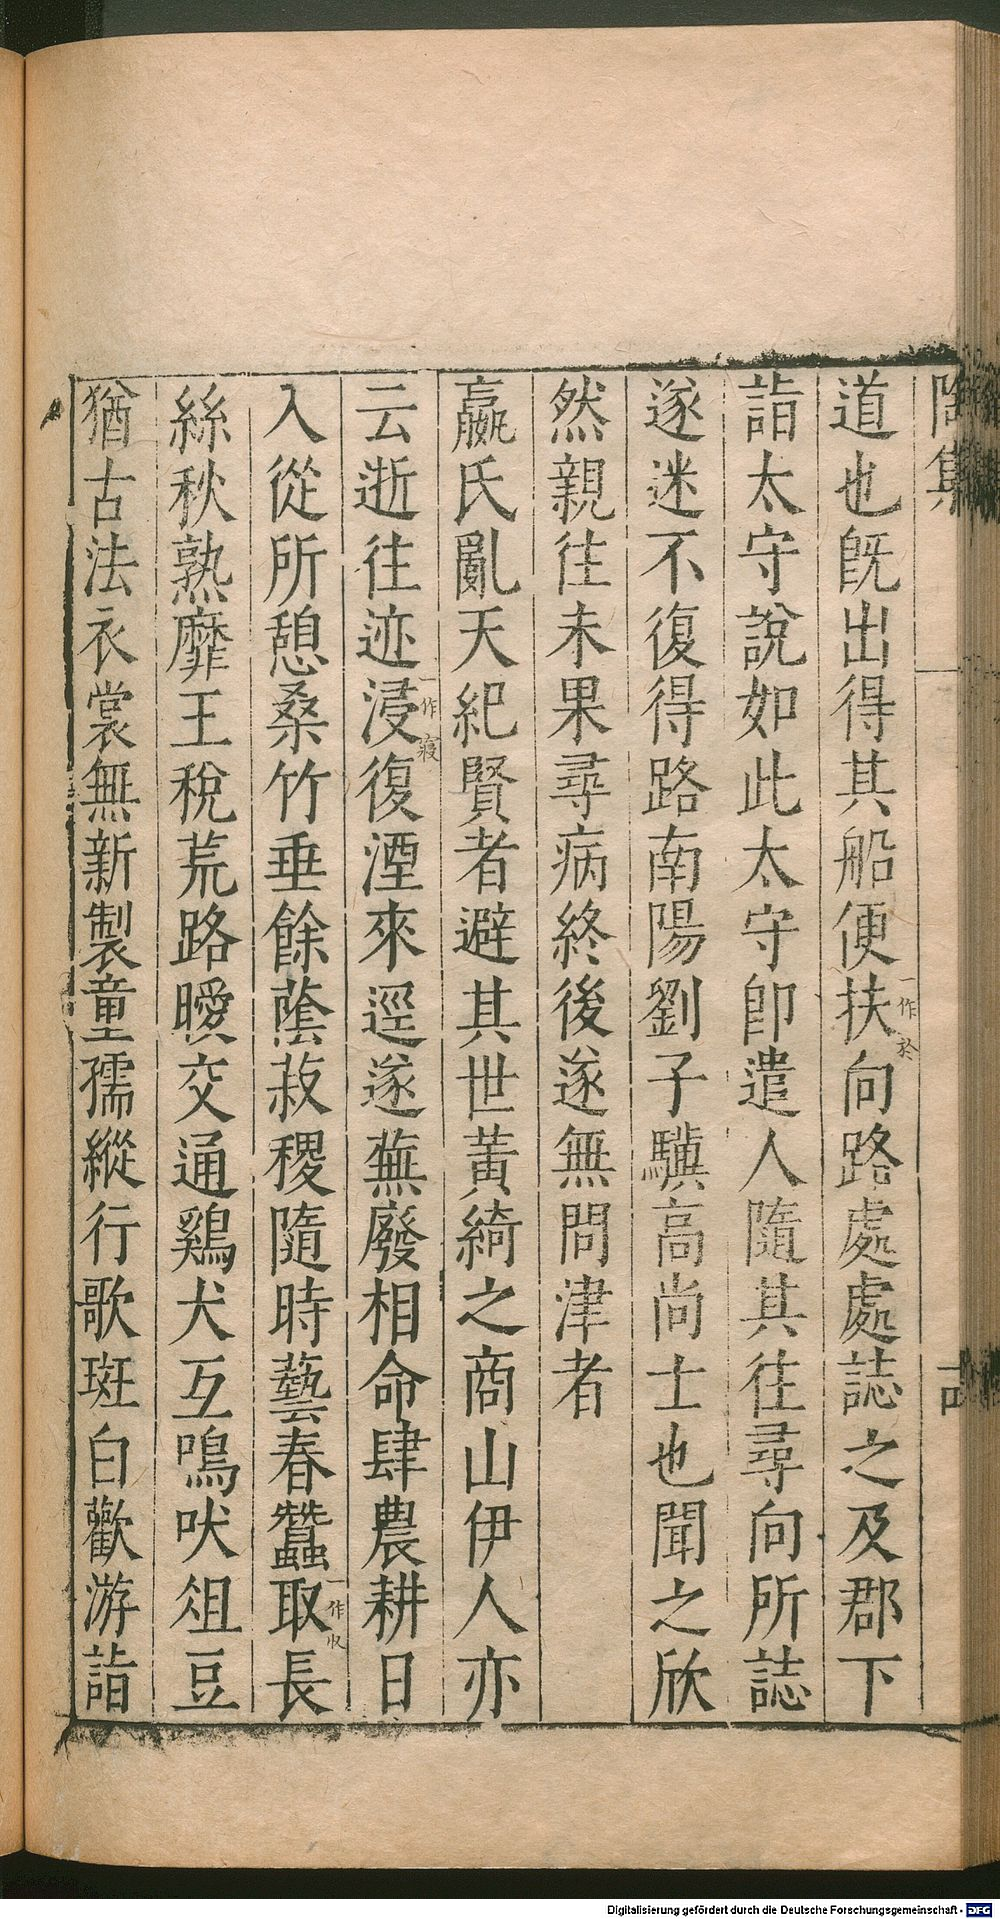 陶集
道也旣出得其船便扶一作於向路處處誌之及郡下
詣太守說如此太守卽遣人隨其往尋向所誌
遂迷不復得路南陽劉子驥高尚士也聞之欣
然親往未果尋病終後遂無問津者
嬴氏亂天紀賢者避其世黃綺之商山伊人亦
云逝往迹浸一作寢復湮來逕遂蕪廢相命肆農耕日
入從所憩桑竹垂餘蔭菽稷隨時藝春蠶取一作收長
絲秋熟靡王稅荒路曖交通鷄犬互鳴吠俎豆
猶古法衣裳無新製童孺縱行歌斑白歡游詣
Digitalisierung gefördert durch die Deutsche Forschungsgemeinschaft - DFG